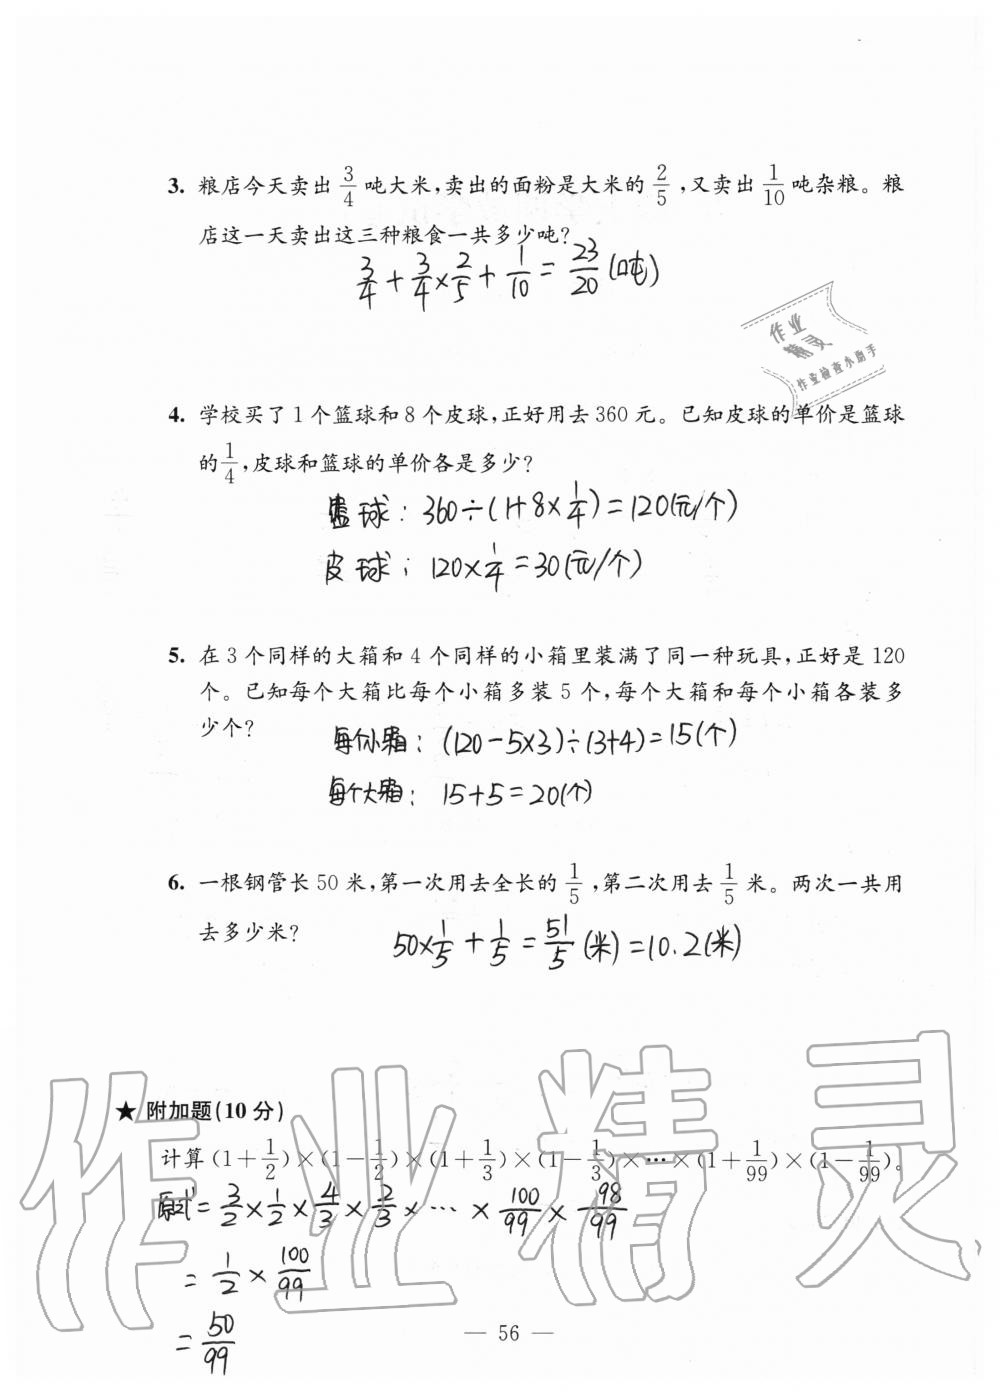 3. 粮店今天卖出 3/4 吨大米,卖出的面粉是大米的 2/5 ,又卖出 1/10 吨杂粮。粮
店这一天卖出这三种粮食一共多少吨?
3/4+3/4×2/5+1/10=23/20(吨)
作业
精灵
作业检查小助手
4. 学校买了1个篮球和8个皮球,正好用去360元。已知皮球的单价是篮球
的1/4,皮球和篮球的单价各是多少?
篮球: 360÷(1+8×1/4)=120(元/个)
皮球: 120×1/4=30(元/个)
5. 在3个同样的大箱和4个同样的小箱里装满了同一种玩具,正好是120
个。已知每个大箱比每个小箱多装5个,每个大箱和每个小箱各装多
少个?
每个小箱: (120-5×3)÷(3+4)=15(个)
每个大箱: 15+5=20(个)
6. 一根钢管长50米,第一次用去全长的 1/5 ,第二次用去 1/5 米。两次一共用
去多少米?
50×1/5+1/5=51/5(米)=10.2(米)
作业精灵
★ 附加题(10分)
计算(1+1/2)×(1-1/2)×(1+1/3)×(1-1/3)×…×(1+1/99)×(1-1/99)。
原式=3/2×1/2×4/3×2/3×…×100/99×98/99
=1/2×100/99
=50/99
— 56 —